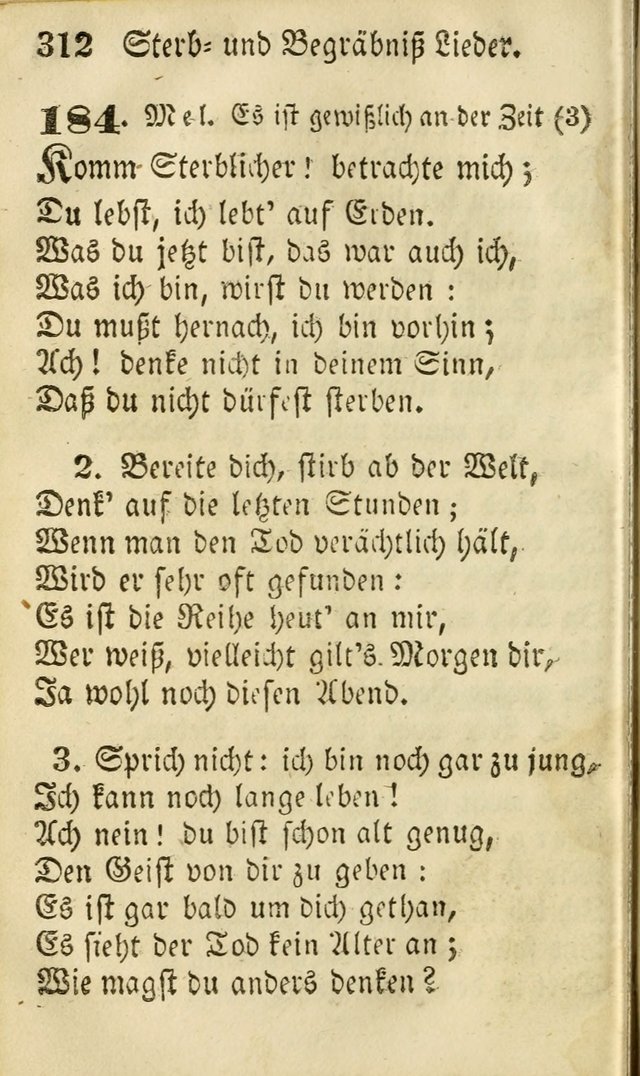 312 Sterb- und Begräbniß Lieder.
184. Mel. Es ist gewißlich an der Zeit (3)
Komm Sterblicher! betrachte mich;
Du lebst, ich lebt' auf Erden.
Was du jetzt bist, das war auch ich,
Was ich bin, wirst du werden:
Du mußt hernach, ich bin vorhin;
Ach! denke nicht in deinem Sinn,
Daß du nicht dürfest sterben.
2. Bereite dich, stirb ab der Welt,
Denk' auf die letzten Stunden;
Wenn man den Tod verächtlich hält,
Wird er sehr oft gefunden:
Es ist die Reihe heut' an mir,
Wer weiß, vielleicht gilt's Morgen dir,
Ja wohl noch diesen Abend.
3. Sprich nicht: ich bin noch gar zu jung,
Ich kann noch lange leben!
Ach nein! du bist schon alt genug,
Den Geist von dir zu geben:
Es ist gar bald um dich gethan,
Es sieht der Tod kein Alter an;
Wie magst du anders denken?